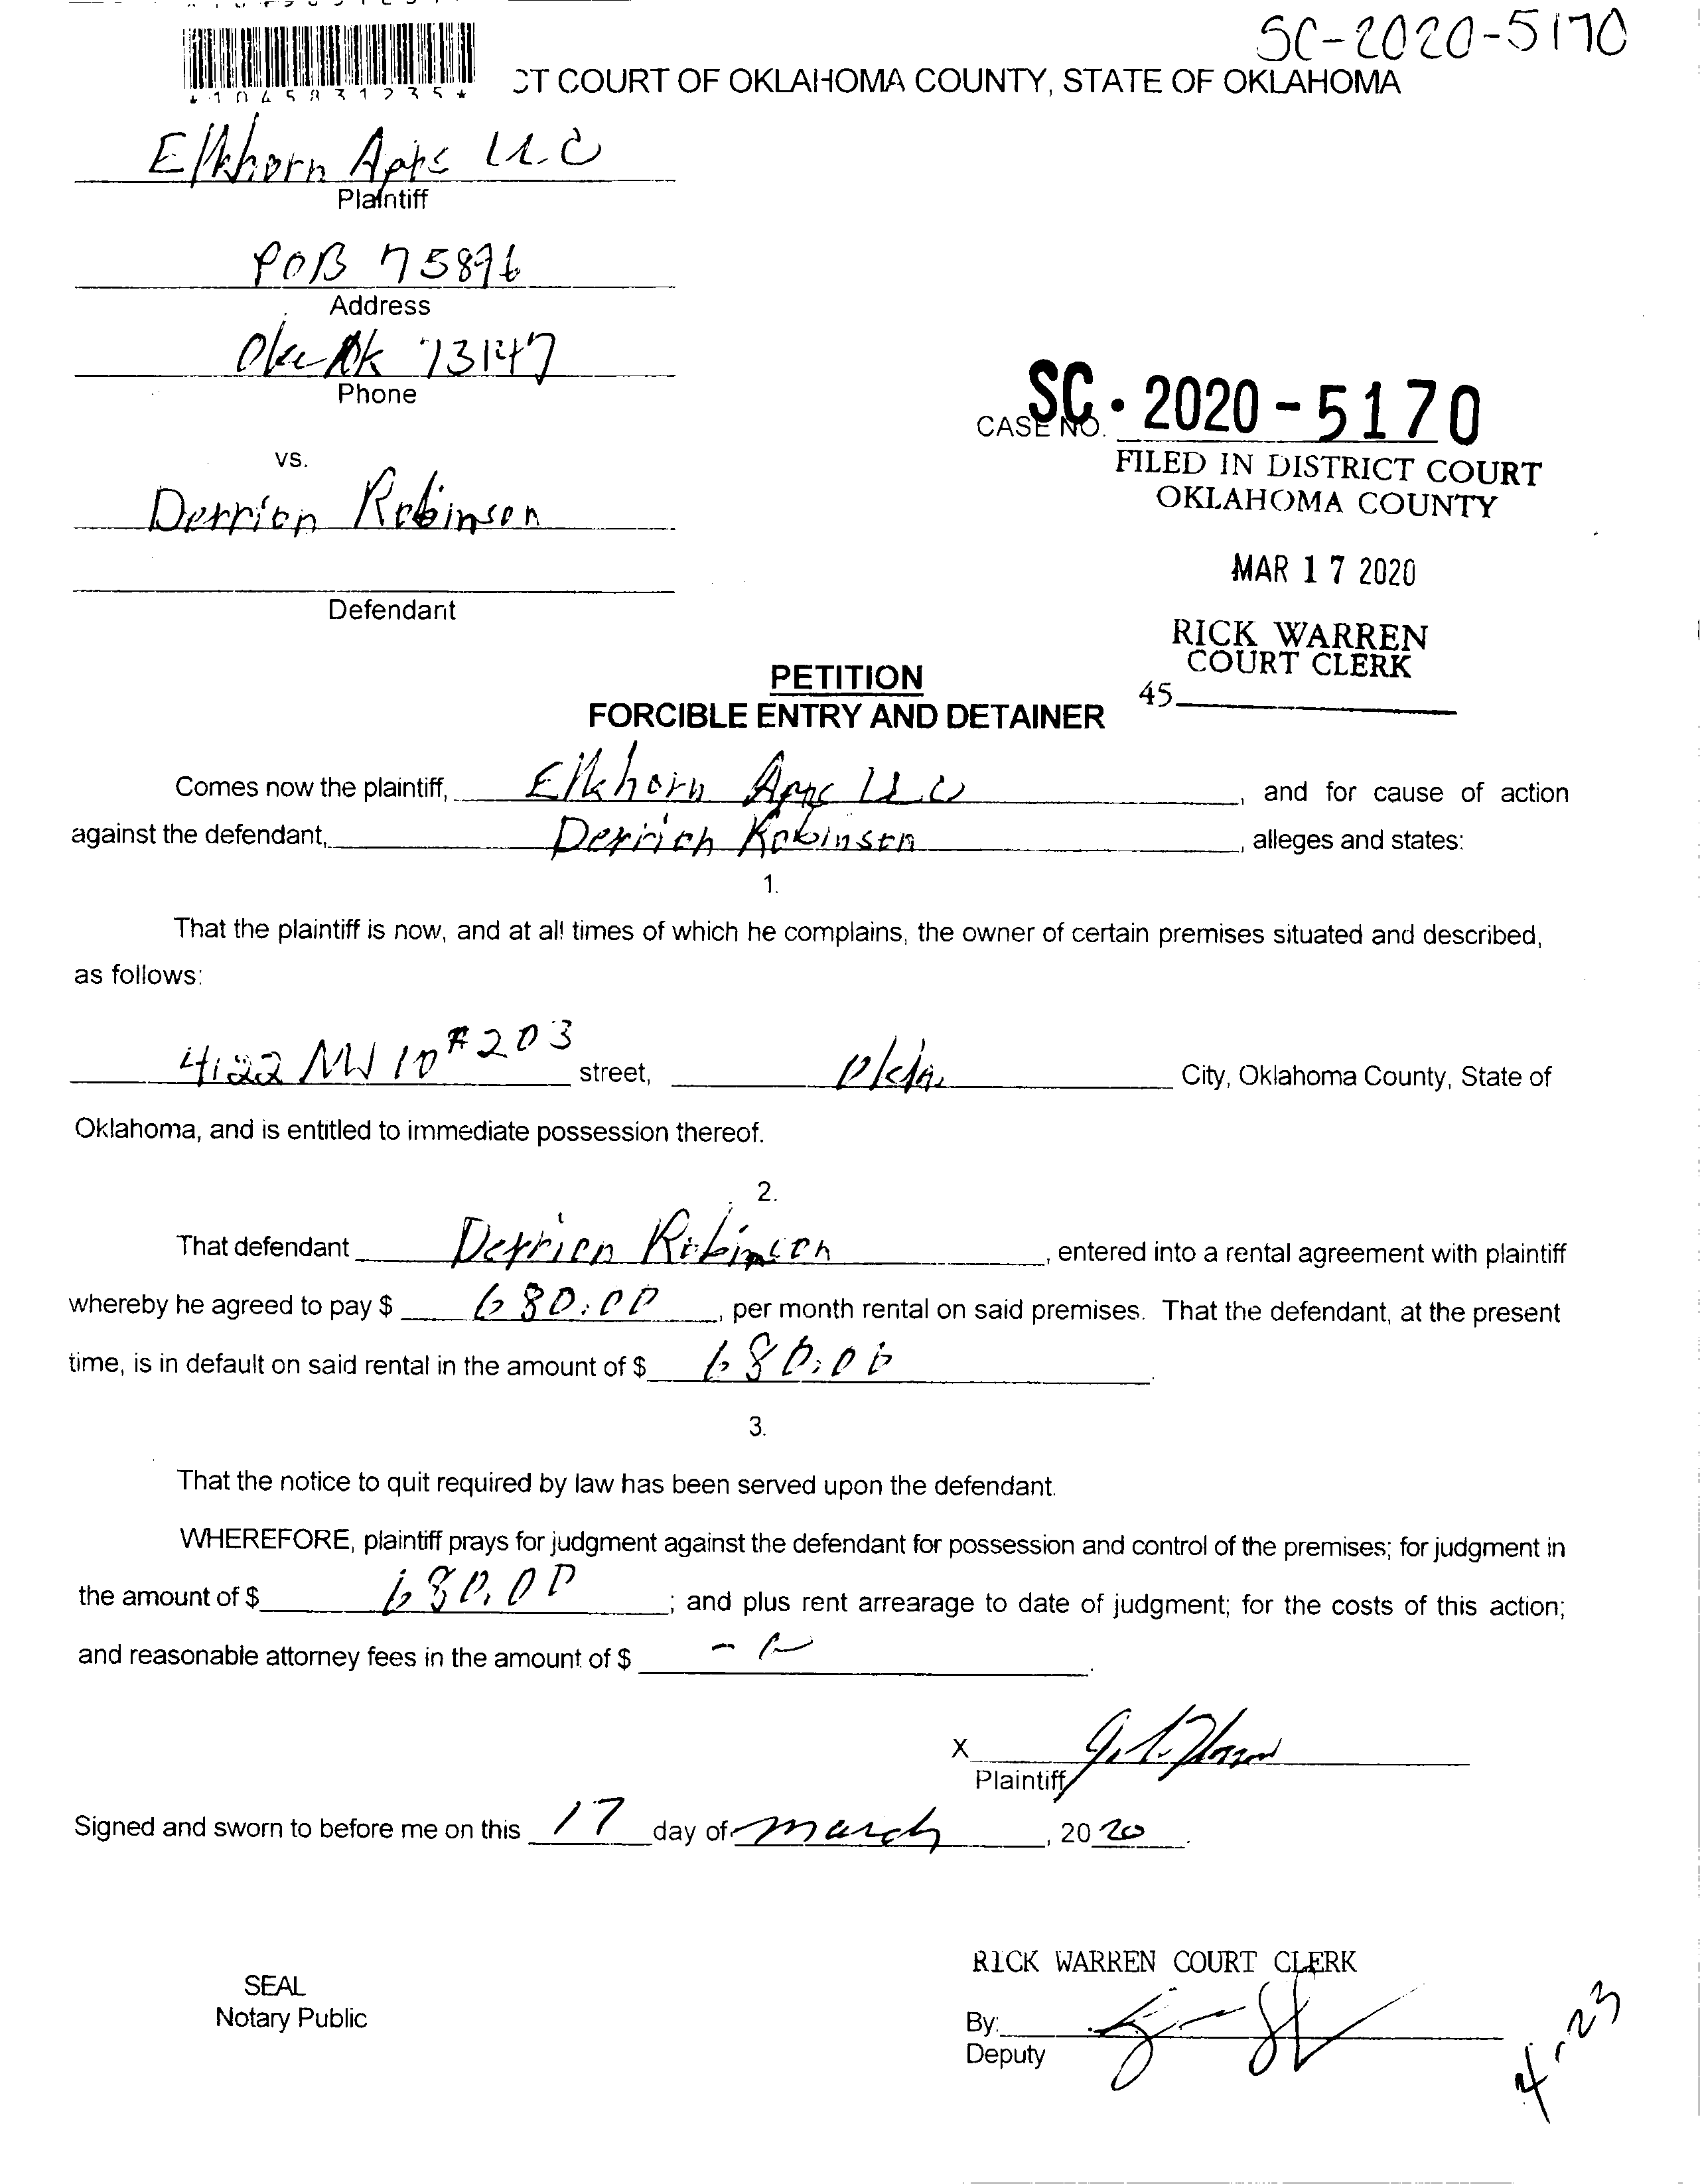 SC-2020-5170
*1045831235*
CT COURT OF OKLAHOMA COUNTY, STATE OF OKLAHOMA
Elkhorn Apts LLC
Plaintiff
POB 75896
Address
Okc Ok 73147
Phone
CASE NO. SC-2020-5170
FILED IN DISTRICT COURT
OKLAHOMA COUNTY
vs.
Derrion Robinson
MAR 17 2020
Defendant
RICK WARREN
COURT CLERK
45
PETITION
FORCIBLE ENTRY AND DETAINER
Comes now the plaintiff, Elkhorn Apts LLC, and for cause of action
against the defendant, Derrion Robinson, alleges and states:
1.
That the plaintiff is now, and at all times of which he complains, the owner of certain premises situated and described,
as follows:
4122 NW 10 #203 street, Okla. City, Oklahoma County, State of
Oklahoma, and is entitled to immediate possession thereof.
2.
That defendant Derrion Robinson, entered into a rental agreement with plaintiff
whereby he agreed to pay $ 680.00, per month rental on said premises. That the defendant, at the present
time, is in default on said rental in the amount of $ 680.00.
3.
That the notice to quit required by law has been served upon the defendant.
WHEREFORE, plaintiff prays for judgment against the defendant for possession and control of the premises; for judgment in
the amount of $ 680.00; and plus rent arrearage to date of judgment; for the costs of this action;
and reasonable attorney fees in the amount of $
X
Plaintiff
Signed and sworn to before me on this 17 day of march, 2020.
RICK WARREN COURT CLERK
SEAL
Notary Public
By:
Deputy
4-23